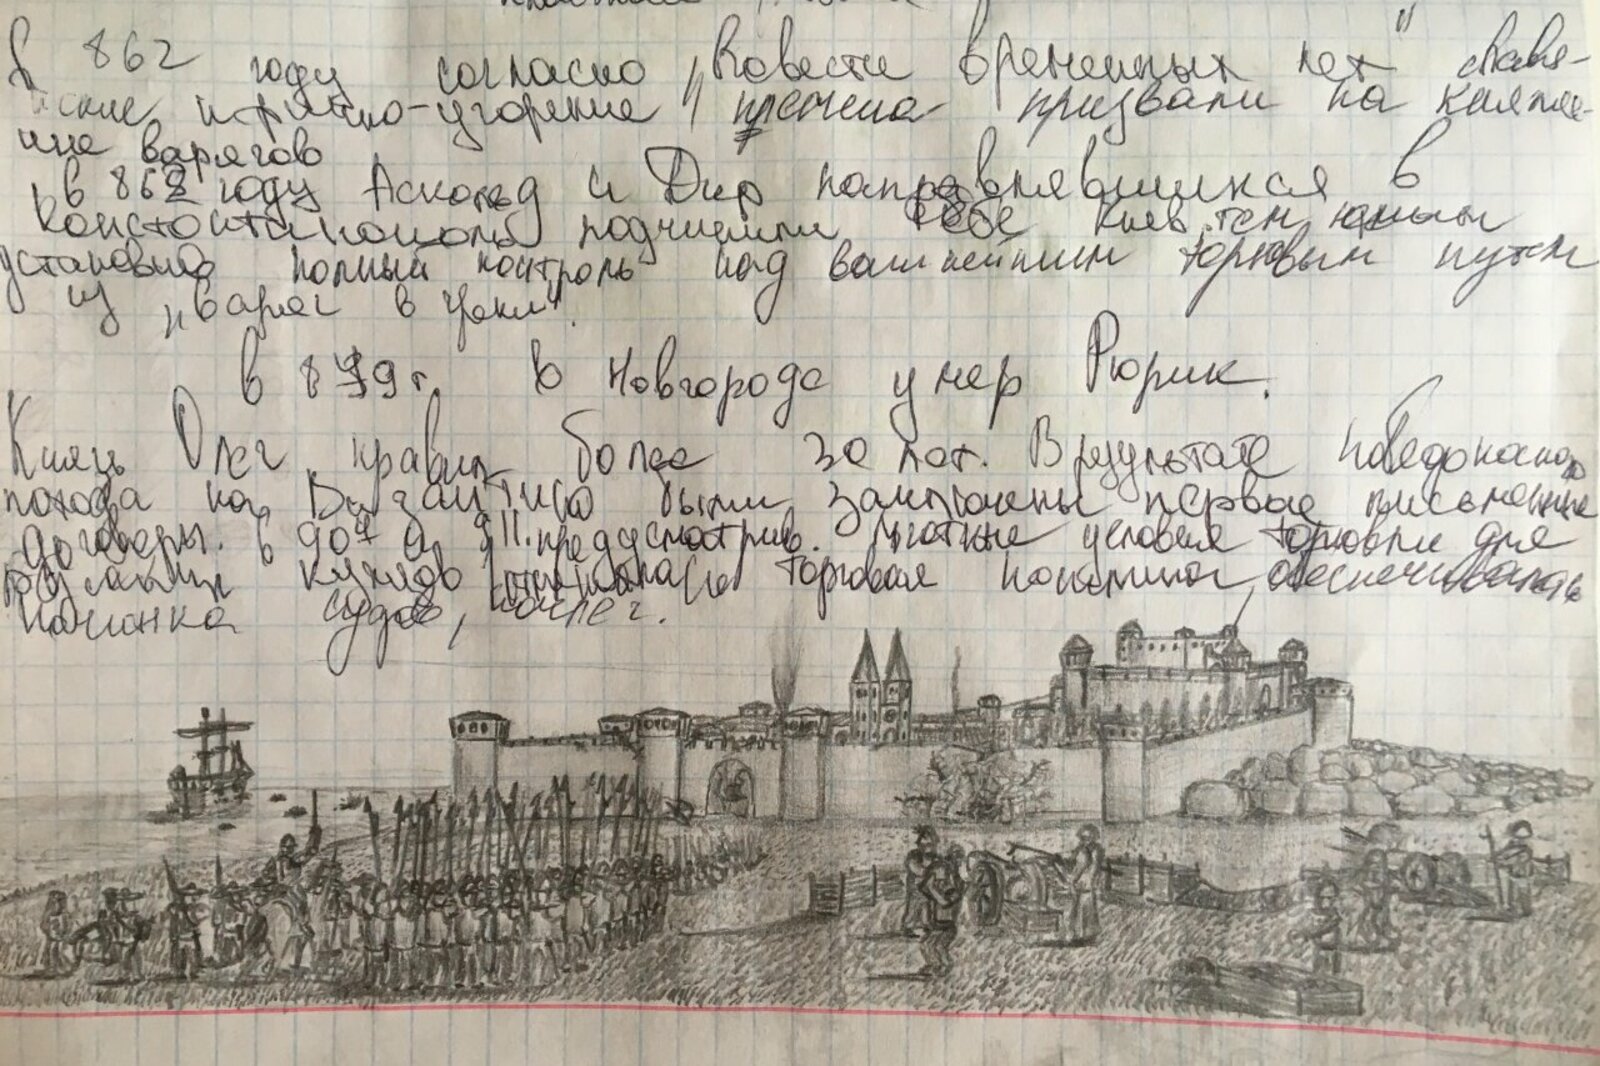 В 862 году согласно "Повести временных лет" славя-
нские и финно-угорские племена призвали на княже-
ние варягов
в 862 году Аскольд и Дир направлявшиеся в
Константинополь подчинили себе Киев тем самым
установив полный контроль над важнейшим торговым путем
из "варяг в греки".
в 879 г. в Новгороде умер Рюрик.
Князь Олег правил более 30 лет. В результате победоносного
похода на Византию были заключены первые письменные
договоры. в 907 и 911. предусматрив. льготные условия торговли для
русских купцов торговая пошлина, обеспечивалась
починка судов, ночлег.